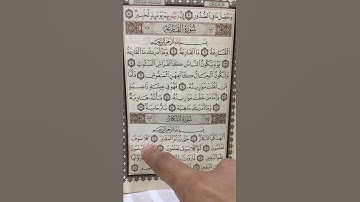 وَحُصِّلَ مَا فِي الصُّدُورِ ۝ إِنَّ رَبَّهُم بِهِمْ يَوْمَئِذٍ لَّخَبِيرٌ ۝
سُورَةُ القَارِعَةِ
بِسْمِ اللَّهِ الرَّحْمَٰنِ الرَّحِيمِ
الْقَارِعَةُ ۝ مَا الْقَارِعَةُ ۝ وَمَا أَدْرَاكَ مَا الْقَارِعَةُ ۝
يَوْمَ يَكُونُ النَّاسُ كَالْفَرَاشِ الْمَبْثُوثِ ۝
وَتَكُونُ الْجِبَالُ كَالْعِهْنِ الْمَنفُوشِ ۝ فَأَمَّا
مَن ثَقُلَتْ مَوَازِينُهُ ۝ فَهُوَ فِي عِيشَةٍ رَّاضِيَةٍ ۝
وَأَمَّا مَنْ خَفَّتْ مَوَازِينُهُ ۝ فَأُمُّهُ هَاوِيَةٌ ۝
وَمَا أَدْرَاكَ مَا هِيَهْ ۝ نَارٌ حَامِيَةٌ ۝
سُورَةُ التَّكَاثُرِ
بِسْمِ اللَّهِ الرَّحْمَٰنِ الرَّحِيمِ
أَلْهَاكُمُ التَّكَاثُرُ ۝ حَتَّىٰ زُرْتُمُ الْمَقَابِرَ ۝ كَلَّا سَوْفَ
تَعْلَمُونَ ۝ ثُمَّ كَلَّا سَوْفَ تَعْلَمُونَ ۝